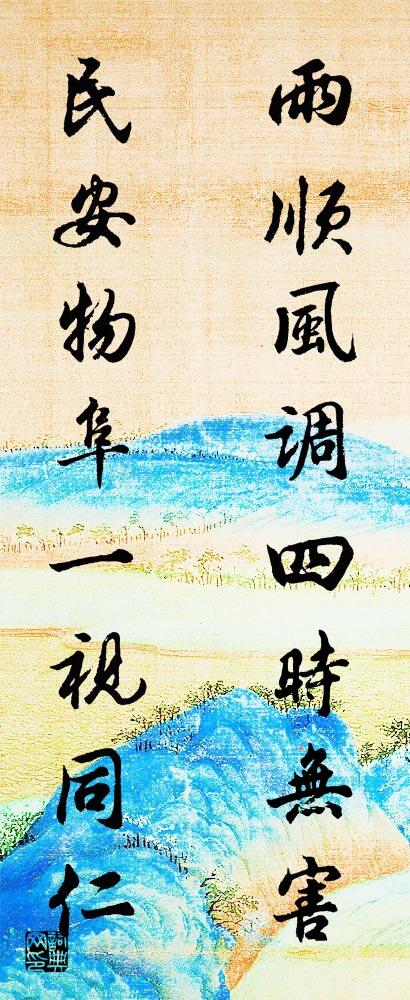 雨順風调四時無害
民安物阜一視同仁